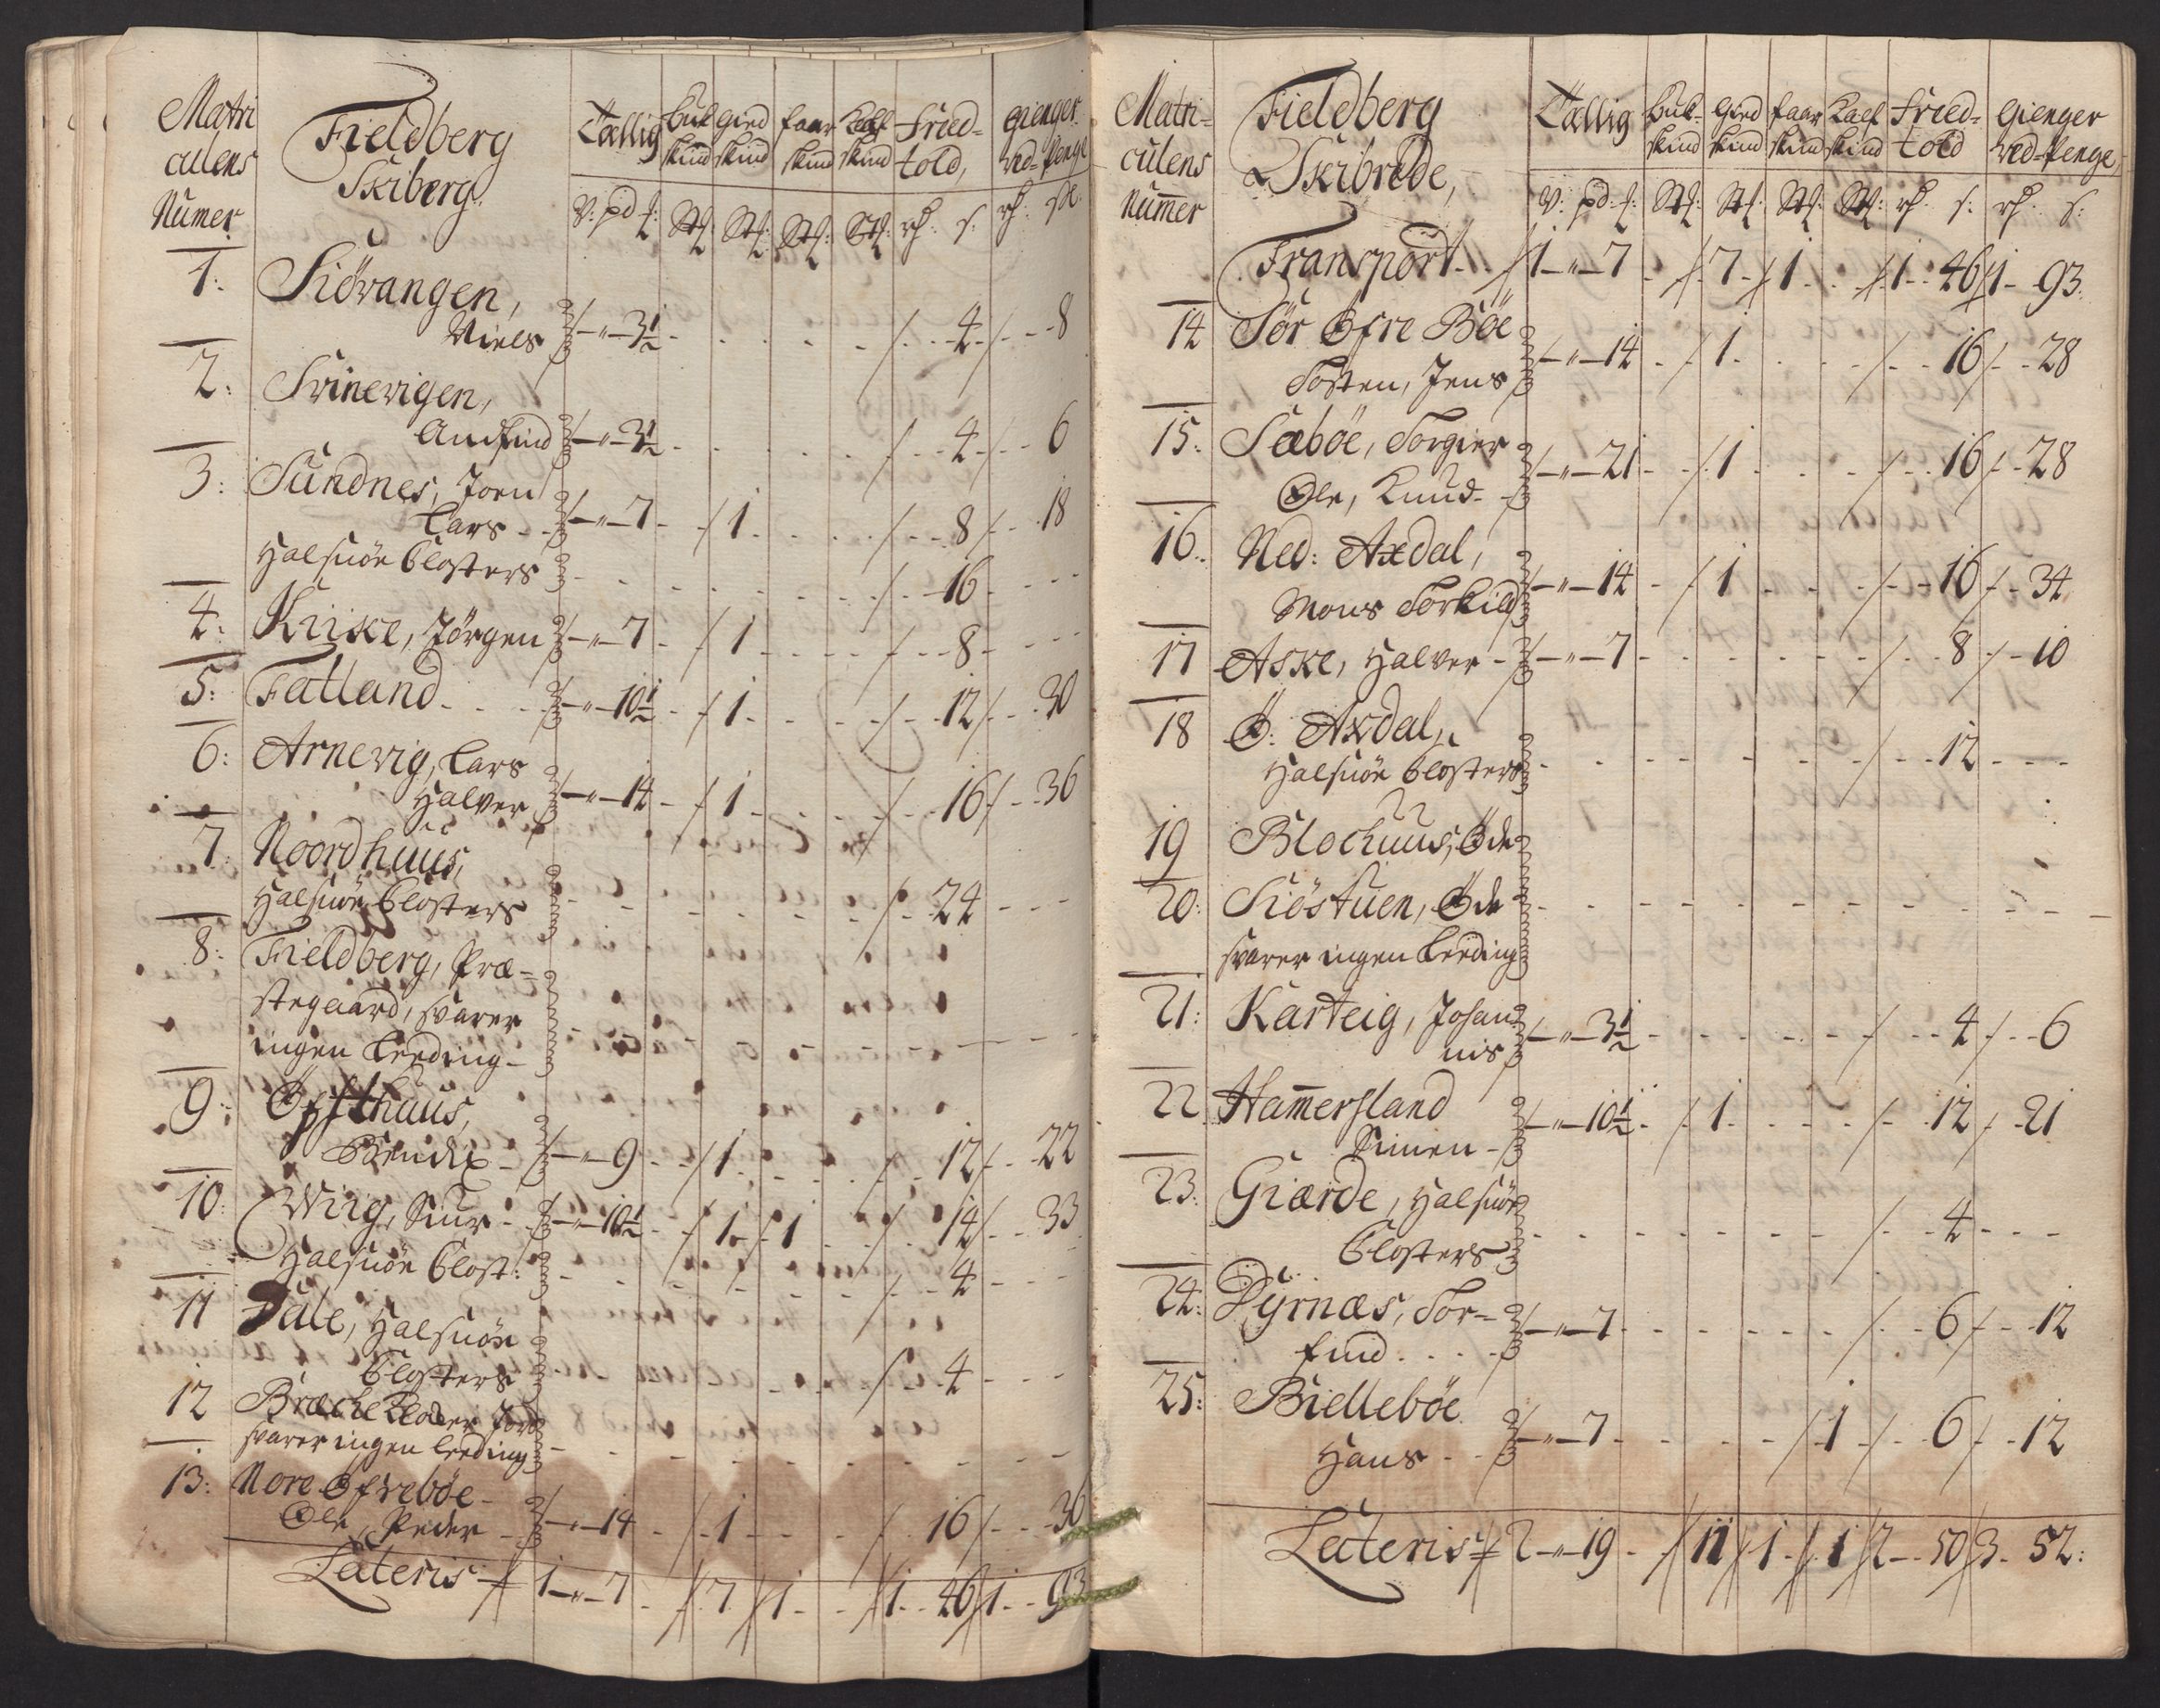 Matri
culens
Numer
Fieldberg
Skiberg
Tællig
buk
skind
gied
skind
faar
skind
Kalf
skind
fried-
told,
gienger
ved-penge
V: pd: f:
Stk:
Stk:
Stk:
Stk:
rf: s:
rf: sk
1: Siövangen,
Niels — " — 3½ 4 8
2: Svinevigen,
Amfind — " — 3½ 4 6
3: Sundnes, Joen
Lars — " — 7 1 8 18
Halsnöe Closters 16
4: Kriike, Jörgen — " — 7 1 8
5: Fatland — " — 10½ 1 12 30
6: Arnevig, Lars
Halver — " — 14 1 16 36
7: Noordhuus,
Halsnöe Closters 24
8: Fieldberg, Præ-
stegaard, svarer
ingen Leeding
9: Opsthuus,
Bendix — " — 9 1 12 22
10: Wiig, Siur — " — 10½ 1 1 14 33
Halsnöe Clost: 4
11 Dale, Halsnöe
Closters 4
12 Bræche Jord
svarer ingen leeding
13: Nore Öfreböe
Ole, Peder — " — 14 1 16 36
Lateris 1 — " — 7 7 1 1 46 1 93
Matri-
culens
Numer
Fieldberg
Skibrede,
Tællig
buk-
skind
gied
skind
faar
skind
Kalf
skind
fried-
told
gienger
ved-penge,
V: pd: f:
Stk:
Stk:
Stk:
Stk:
rf: s:
rf: s:
Transport 1 — " — 7 7 1 1 46 1 93
14 Sör Öfre Böe
Tosten, Jens — " — 14 1 16 28
15: Sæböe, Torgier
Ole, Knud — " — 21 1 16 28
16: Ned: Axdal,
Mons Torkild — " — 14 1 16 34
17 Aske, Halver — " — 7 8 10
18 Ö: Axdal,
Halsnöe Closters 12
19 Blochuus, Öde
20: Siöstuen, Öde
svarer ingen Leeding
21: Karteig, Johan-
nis — " — 3½ 4 6
22 Ham̄ersland
Simen — " — 10½ 1 12 21
23: Giærde, Halsnöe
Closters 4
24: Dyrnæs, Tor-
find — " — 7 6 12
25: Bielleböe
Hans — " — 7 1 6 12
Lateris 2 — " — 19 11 1 1 2 50 3 52: